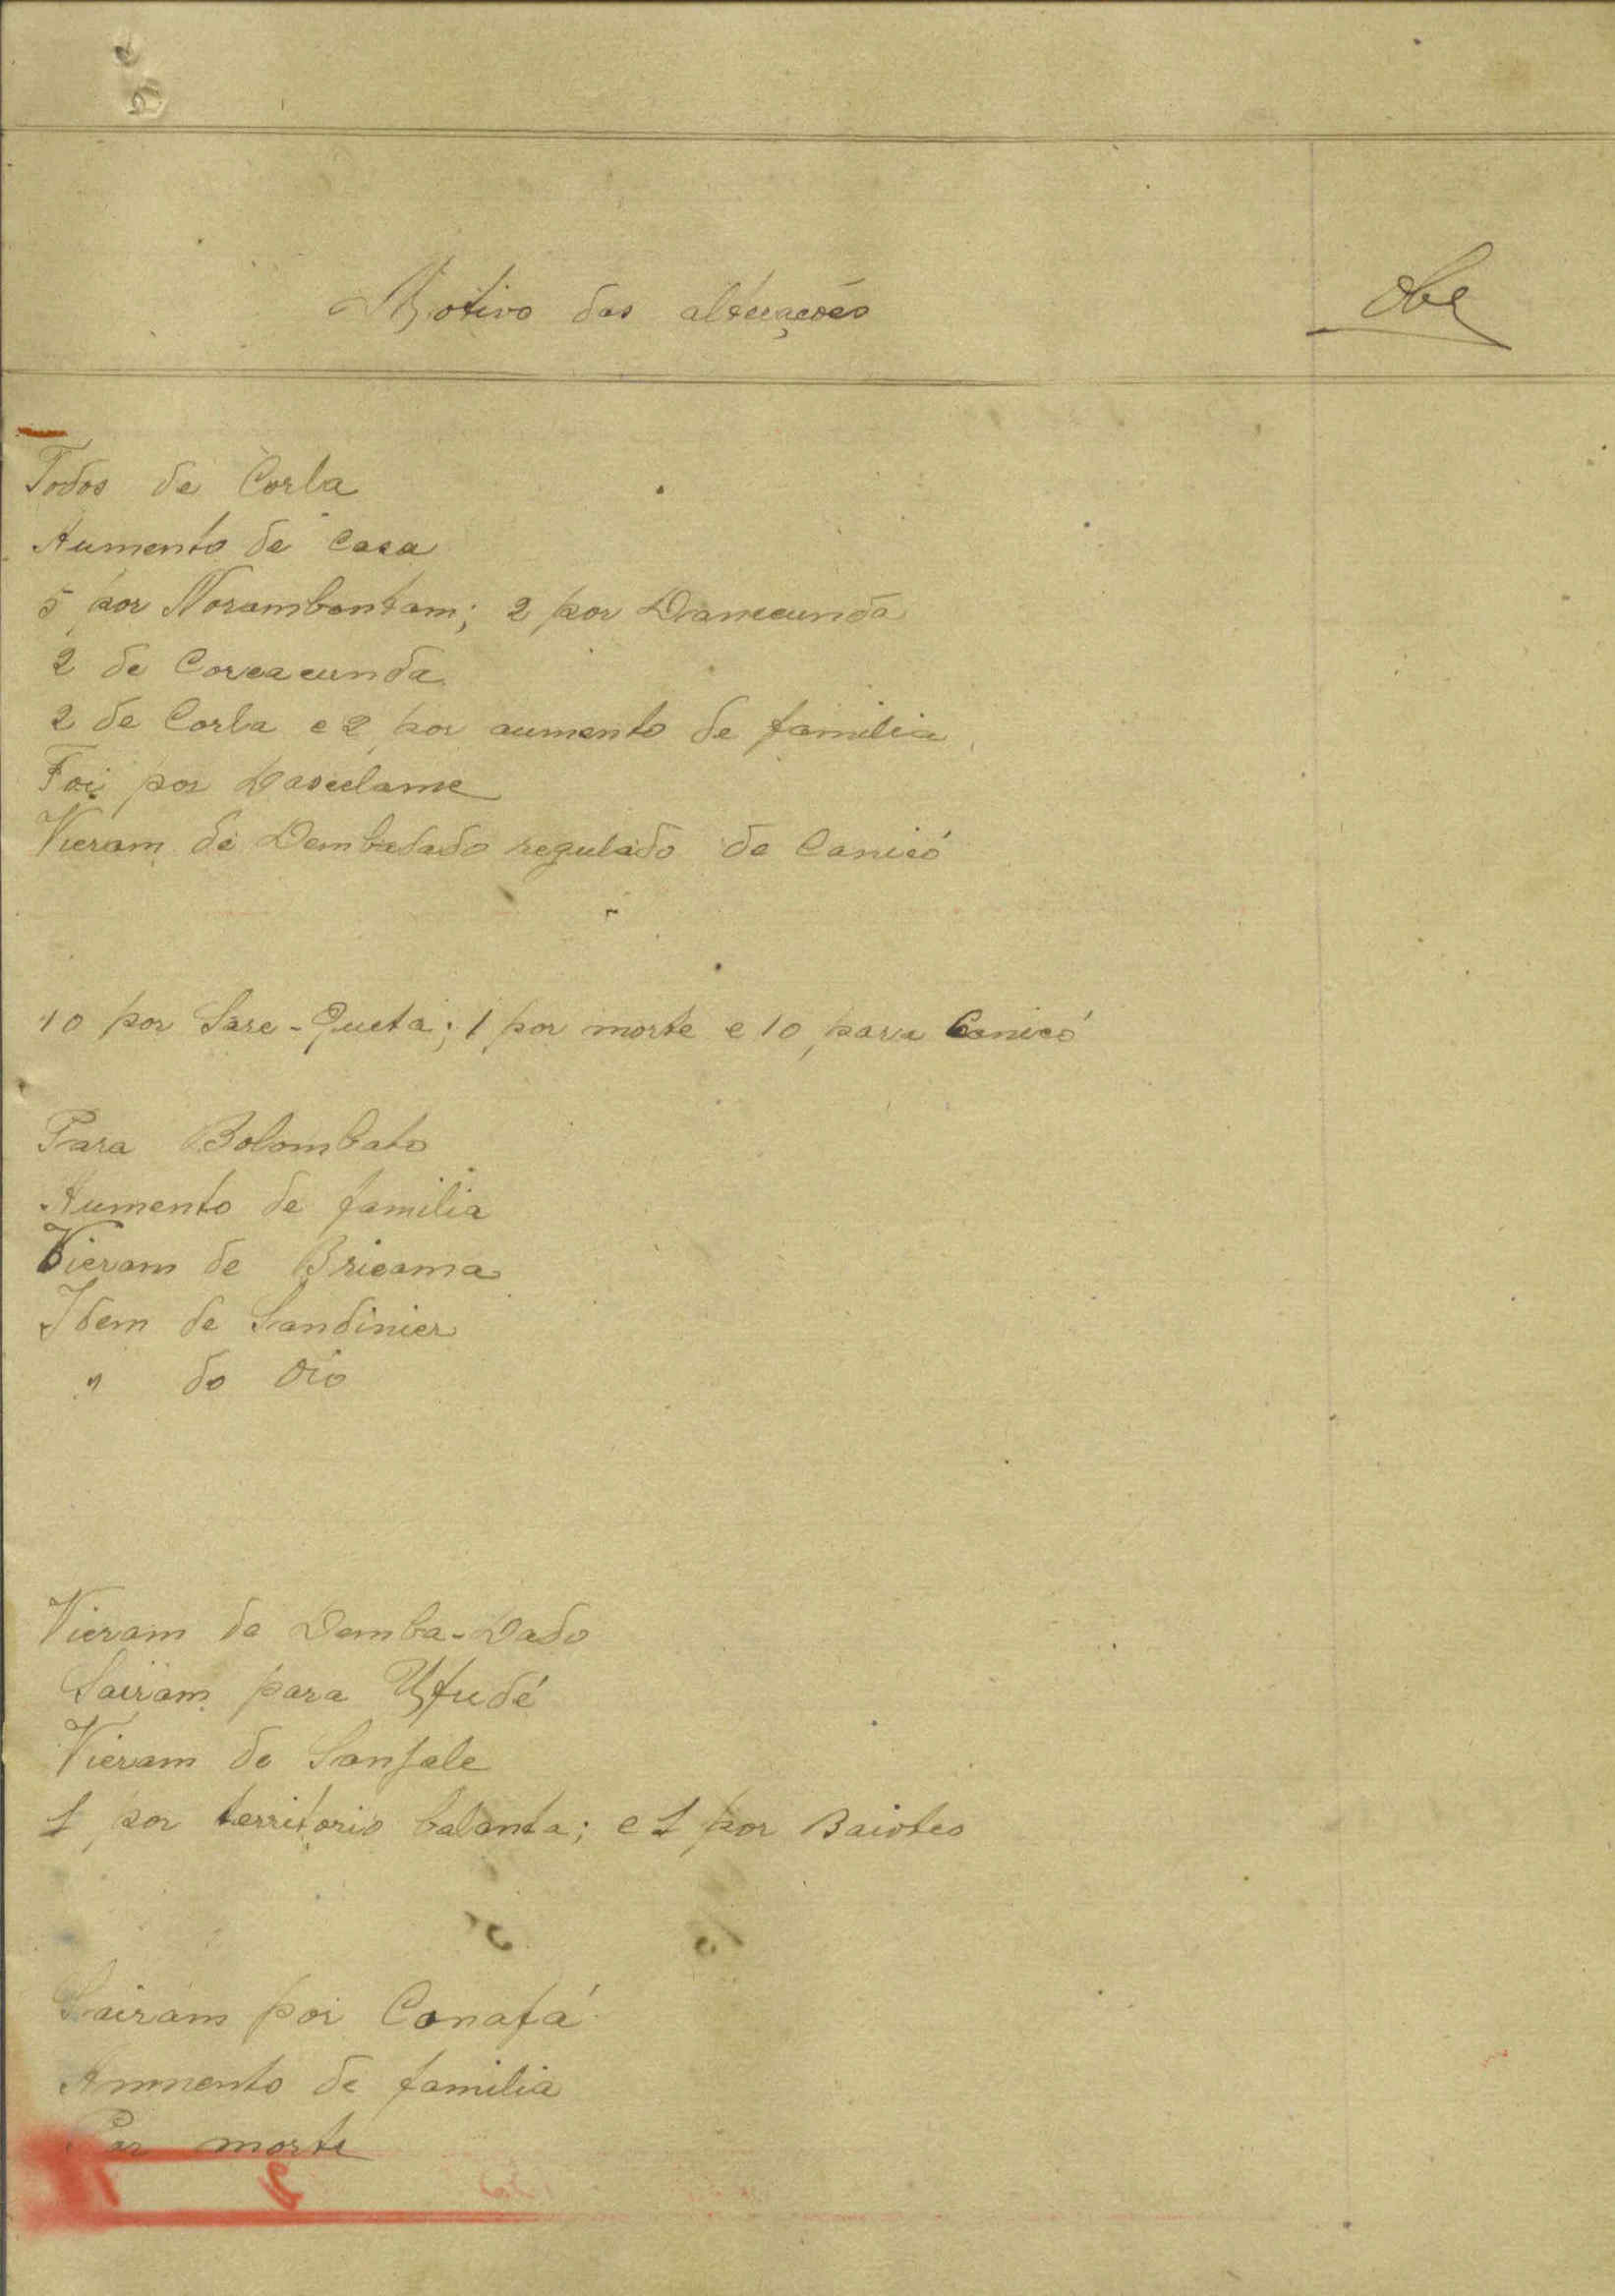 Motivo das alterações
Obs
Todos de Corla
Aumento de casa
5 por Norambontam; 2 por Dianecunda
2 de Coreacunda
2 de Corla e 2 por aumento de familia
Foi por
Vieram de Dembadado regulado de Canicó
10 por Sare-Queta; 1 por morte e 10 para Canicó
Para Bolombato
Aumento de familia
Vieram de Bricama
Idem de Sandinier
" do Oio
Vieram de Demba-Dado
Sairam para
Vieram de Sanfale
1 por territorio balanta; e 1 por Baiotes
Sairam por Canafá
Aumento de familia
Por morte